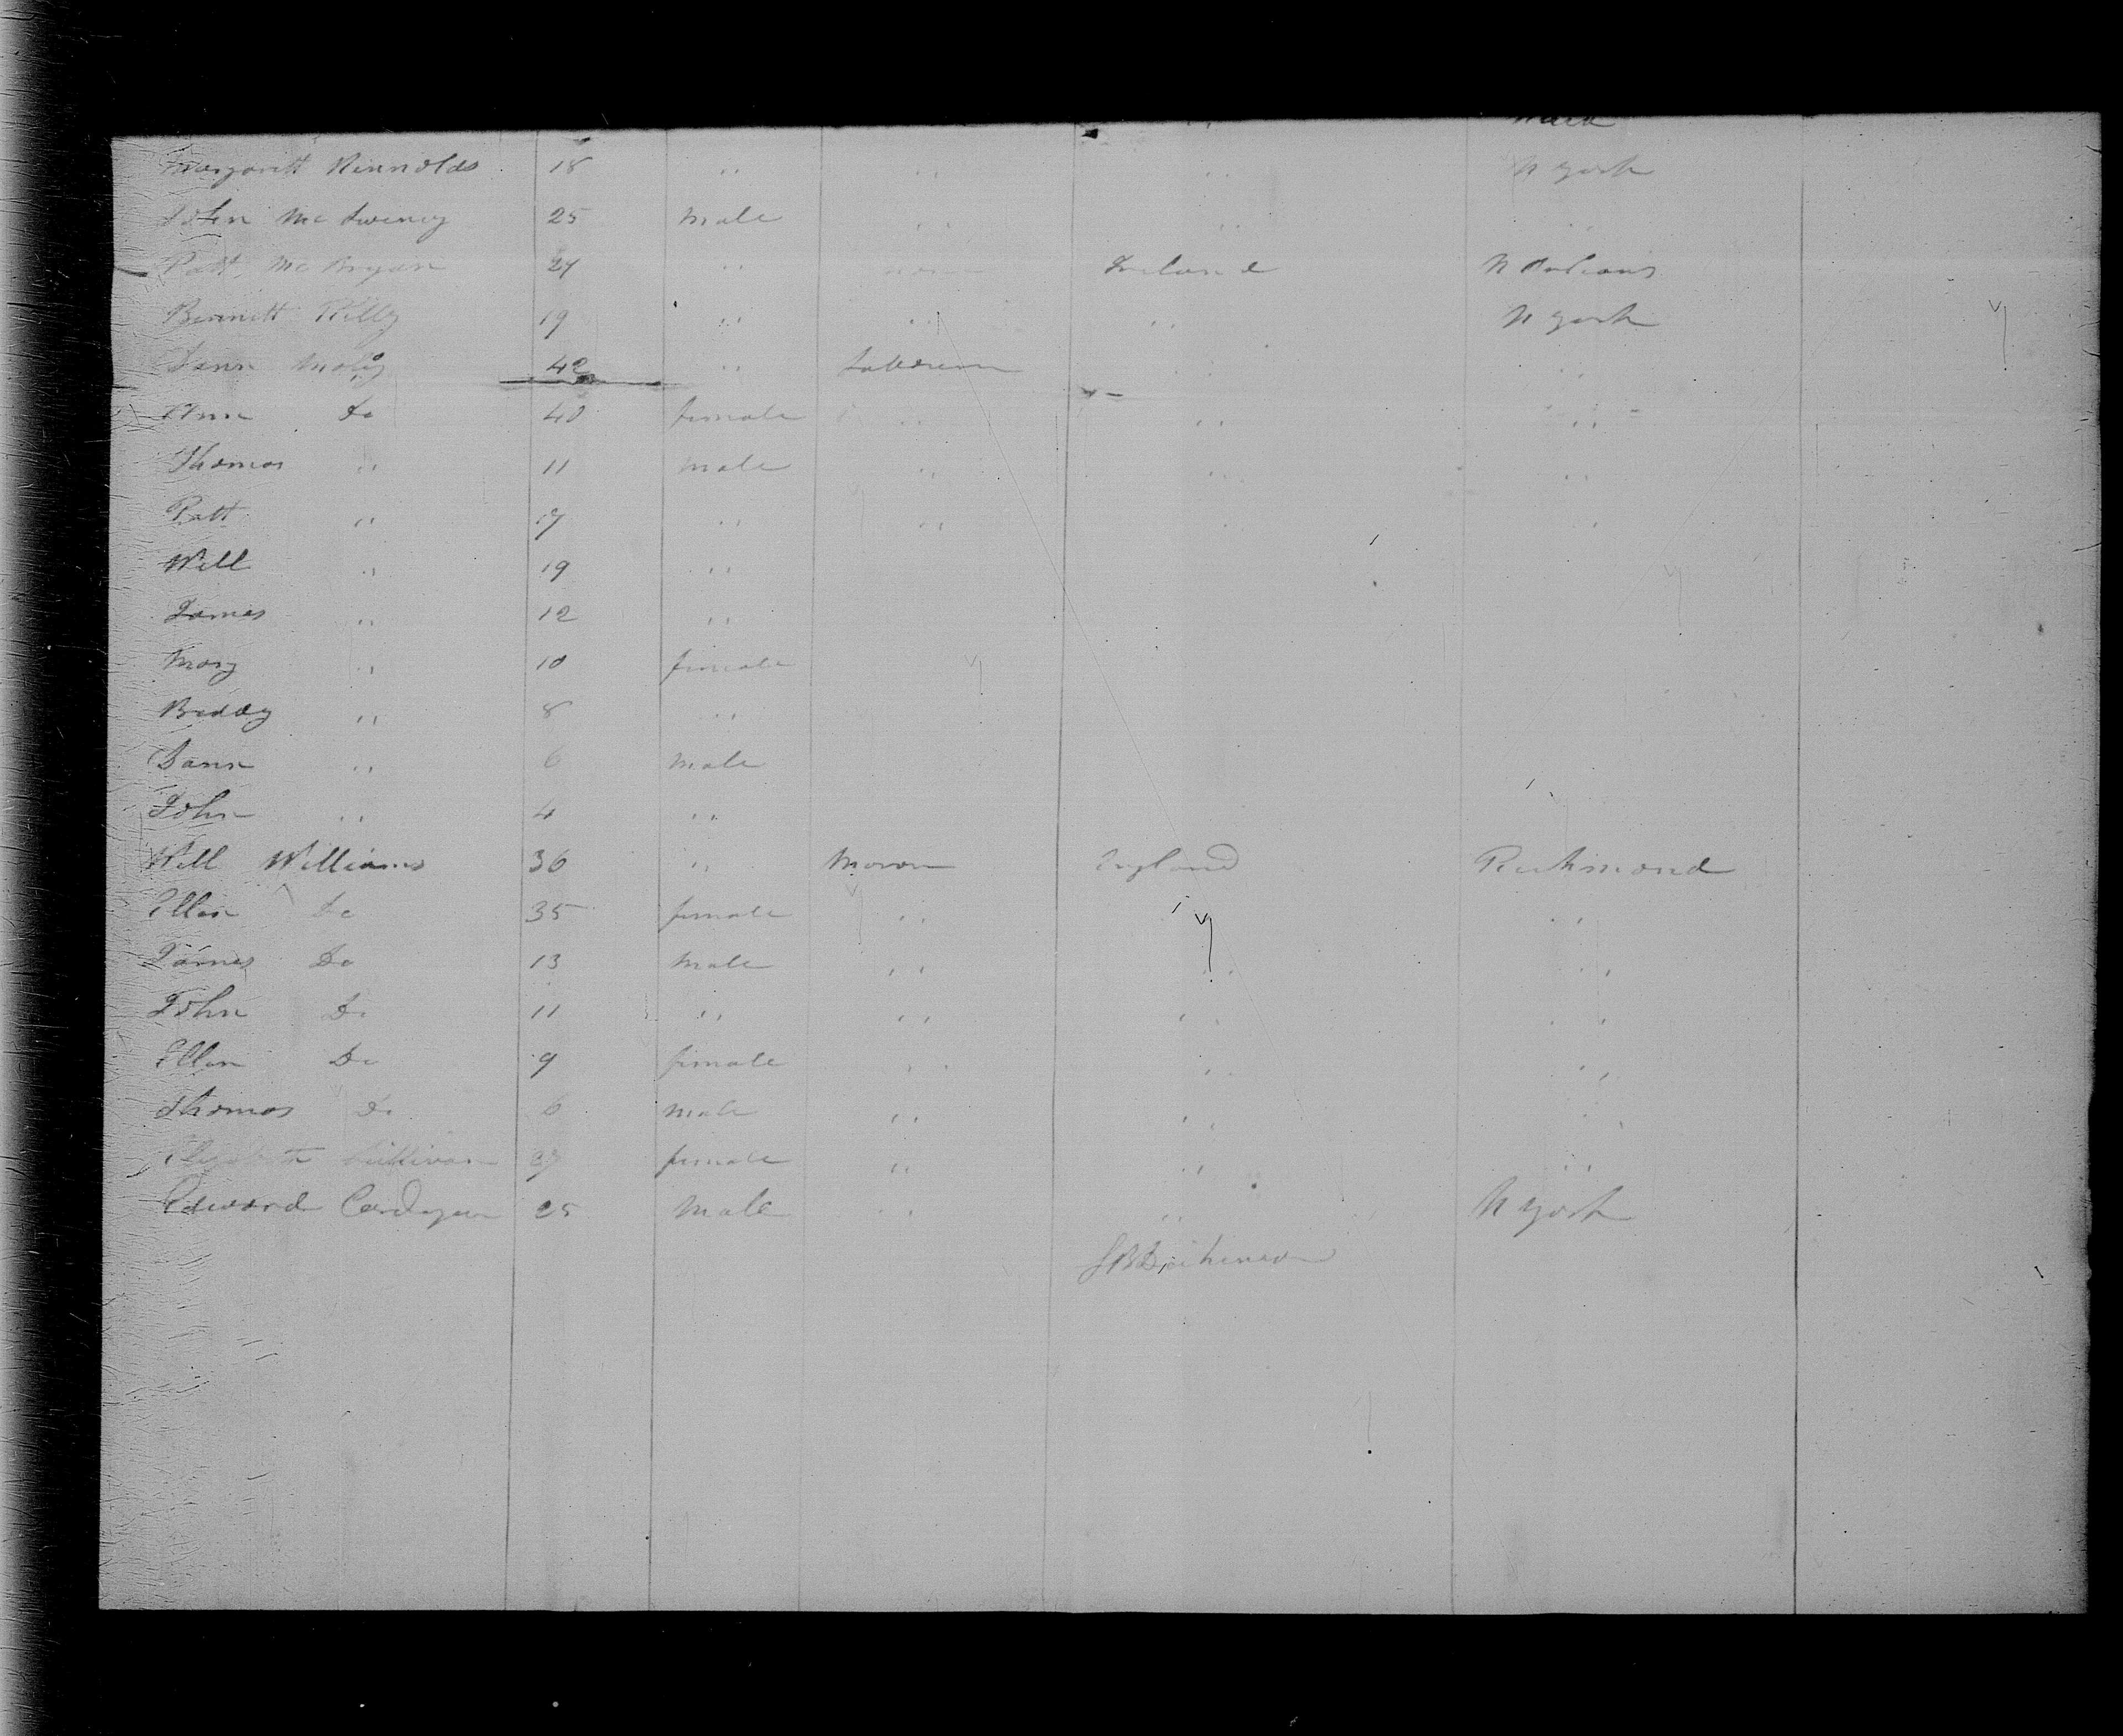 Margarett Rinnolds 18 " " " N york
John Mc Sweney 25 Male " " "
Patt Mc Bryan 24 " none Ireland N Orleans
Bennett Killy 19 " " " N york
Dann 42 " " "
Ann Do 40 female " " "
Thomas " 11 Male " " "
Patt " 17 " " " "
Will " 19 "
James " 12 "
Mary " 10 female
Biddy " 8 "
Dann " 6 Male
John " 4 "
Will Williams 36 " England Richmond
Ellen Do 35 female " " "
James Do 13 Male " " "
John Do 11 " " " "
Ellen Do 9 female " " "
Thomas Do 6 Male " " "
Elizabeth Sullivan 37 female " " "
Edward 25 Male " " N york